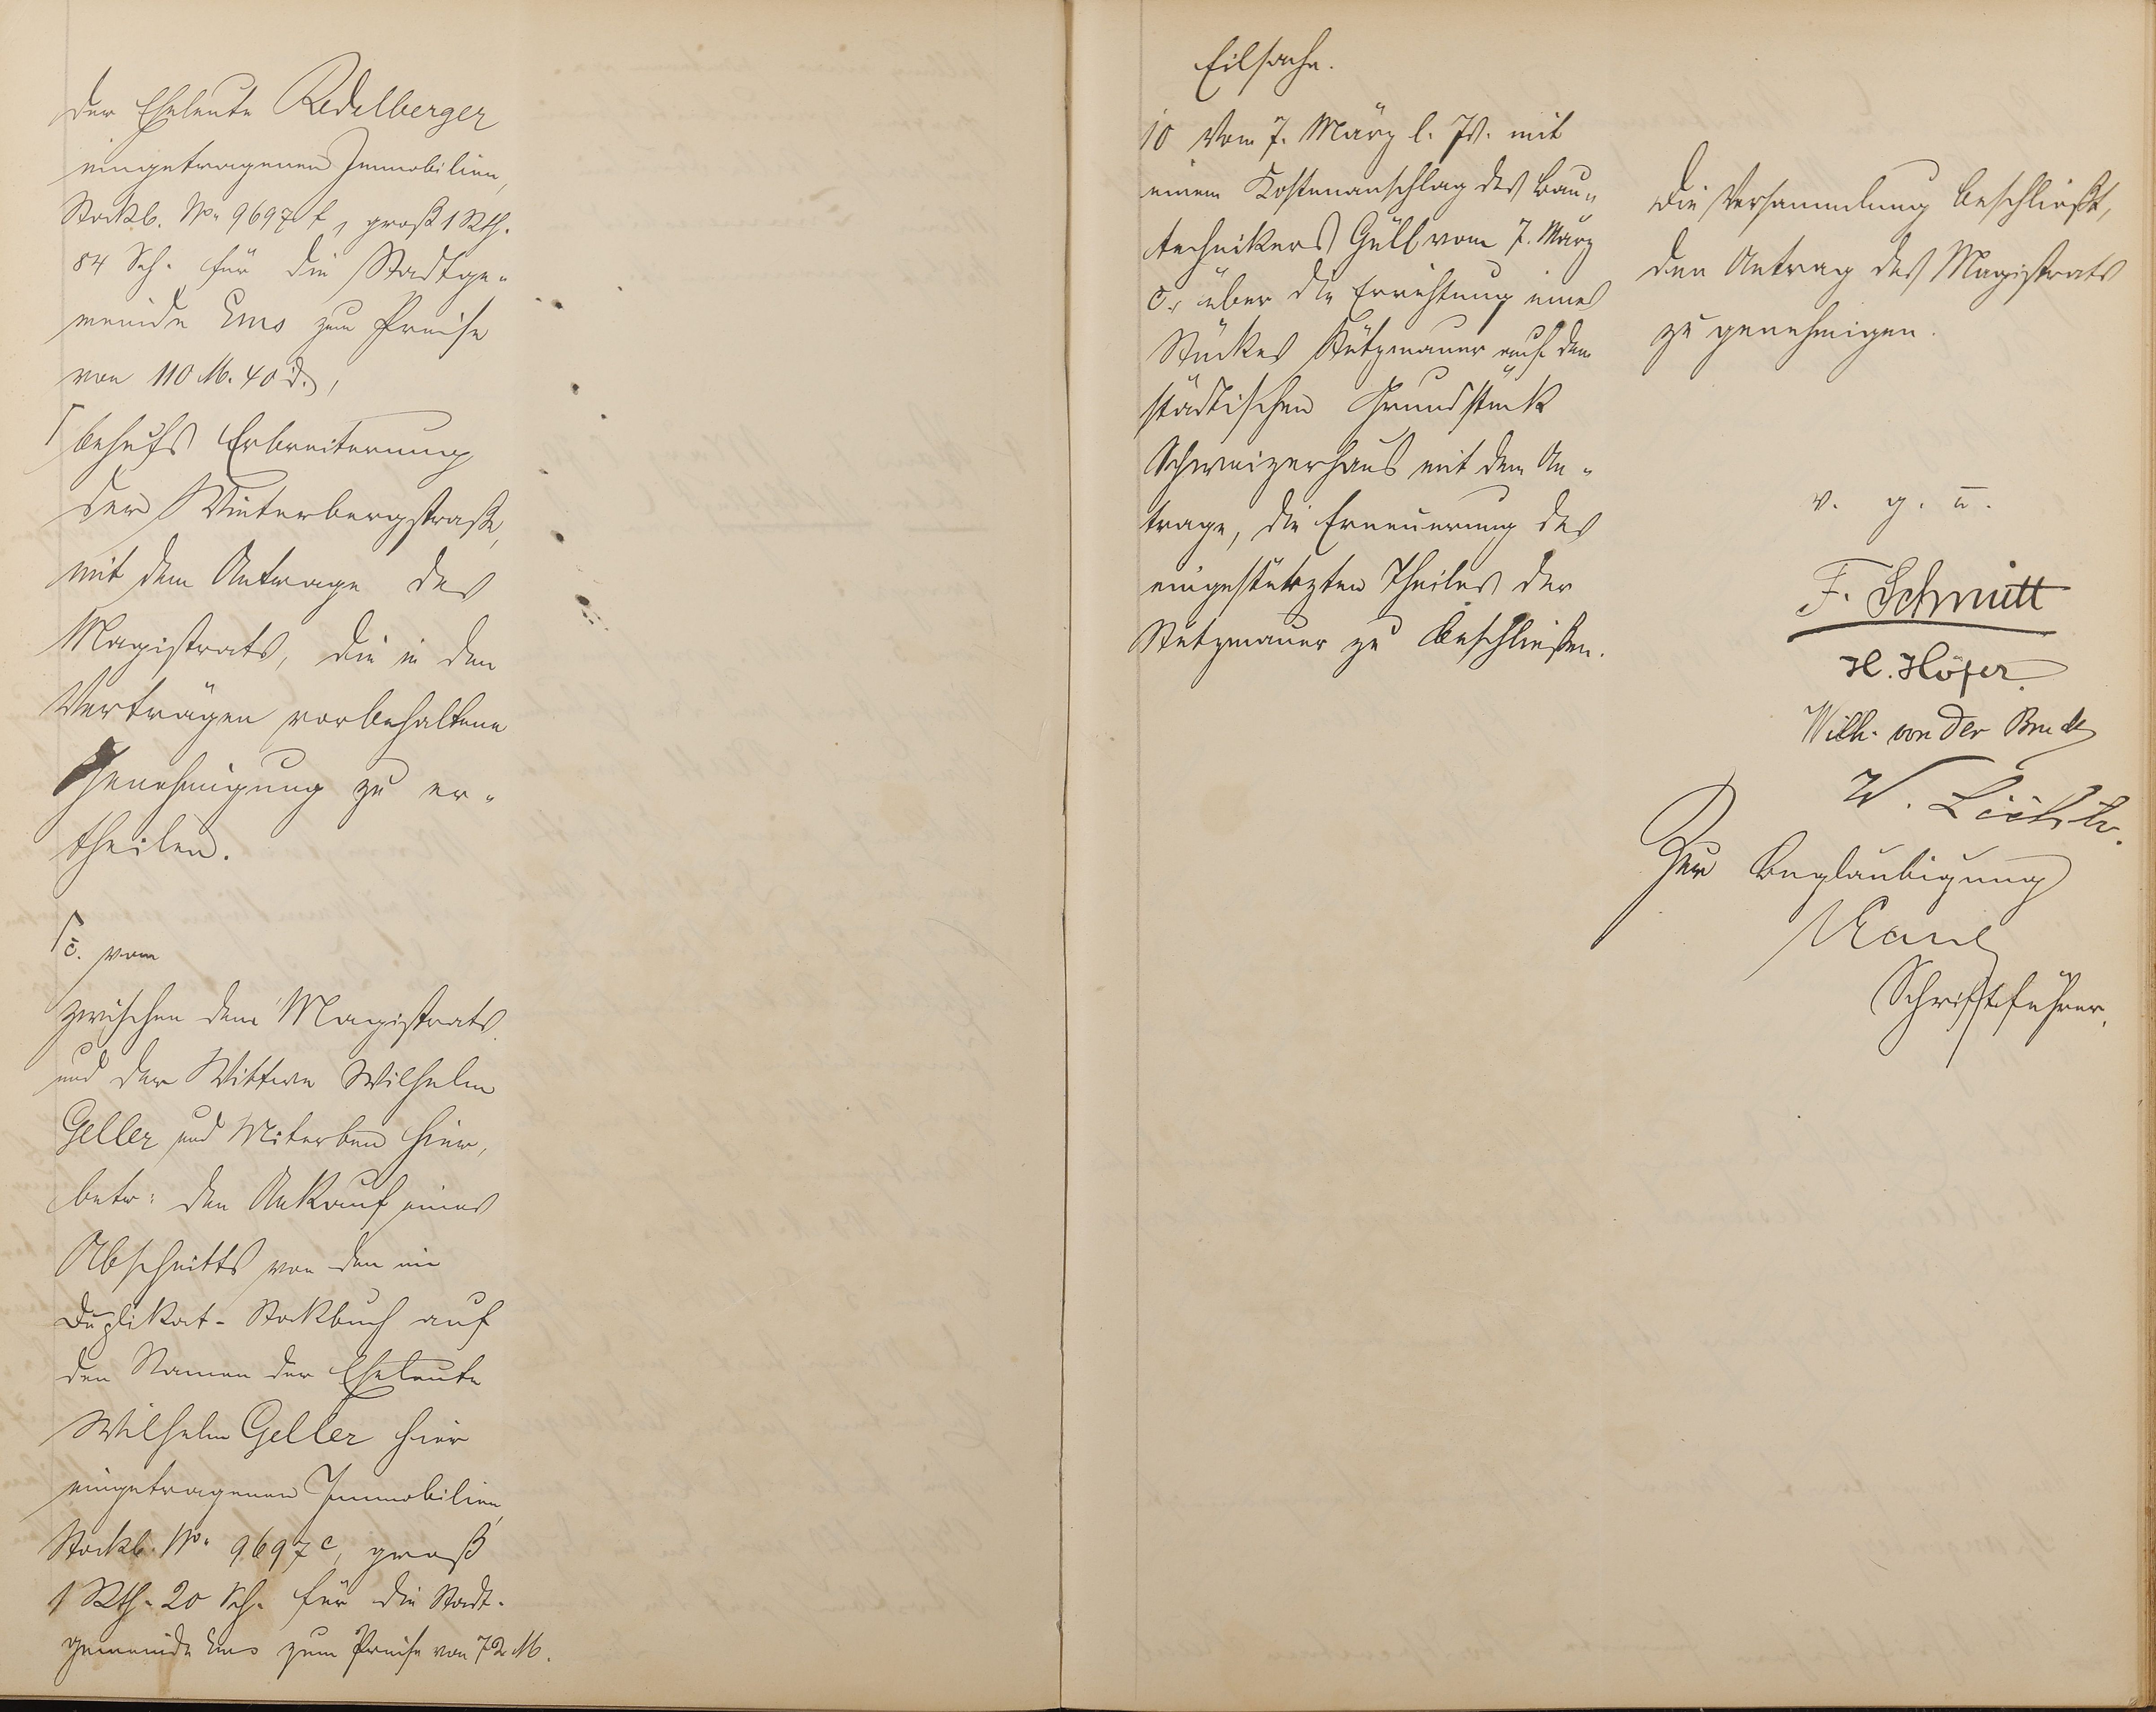 der Eheleute Redelberger
eingetragenen Immobilien,
Stockb. No. 9697 f, groß 1 Rth.
84 Sch. für die Stadtge-
meinde Ems zum Preise
von 110 M. 40 d.,
behufs Erbreiterung
der Winterbergstraße,
mit dem Antrage des
Magistrats, die in den
Verträgen vorbehaltene
Genehmigung zu er-
theilen.
c. vom
zwischen dem Magistrats
und der Wittwe Wilhelm
Geller und Miterben hier,
betr: den Ankauf eines
Abschnitts von den im
Duplikat-Stockbuch auf
den Namen der Eheleute
Wilhelm Geller hier
eingetragenen Immobilien,
Stockb. No. 9697 c, groß
1 Rth. 20 Sch. für die Stadt-
gemeinde Ems zum Preise von 72 M.
Eilsache.
10 Vom 7. März l. Js. mit
einem Kostenanschlag des Bau-
technikers Güll vom 7. März
c., über die Errichtung eines
Stückes Stützmauer auf dem
städtischen Grundstück
Schweizerhaus mit dem An-
trage, die Erneuerung des
eingestürzten Theiles der
Stützmauer zu beschließen.
Die Versammlung beschließt,
den Antrag des Magistrats
zu genehmigen.
v. g. u.
F. Schmitt
H. Höfer
Wilh. von der
W.
Zur Beglaubigung
Schriftführer.